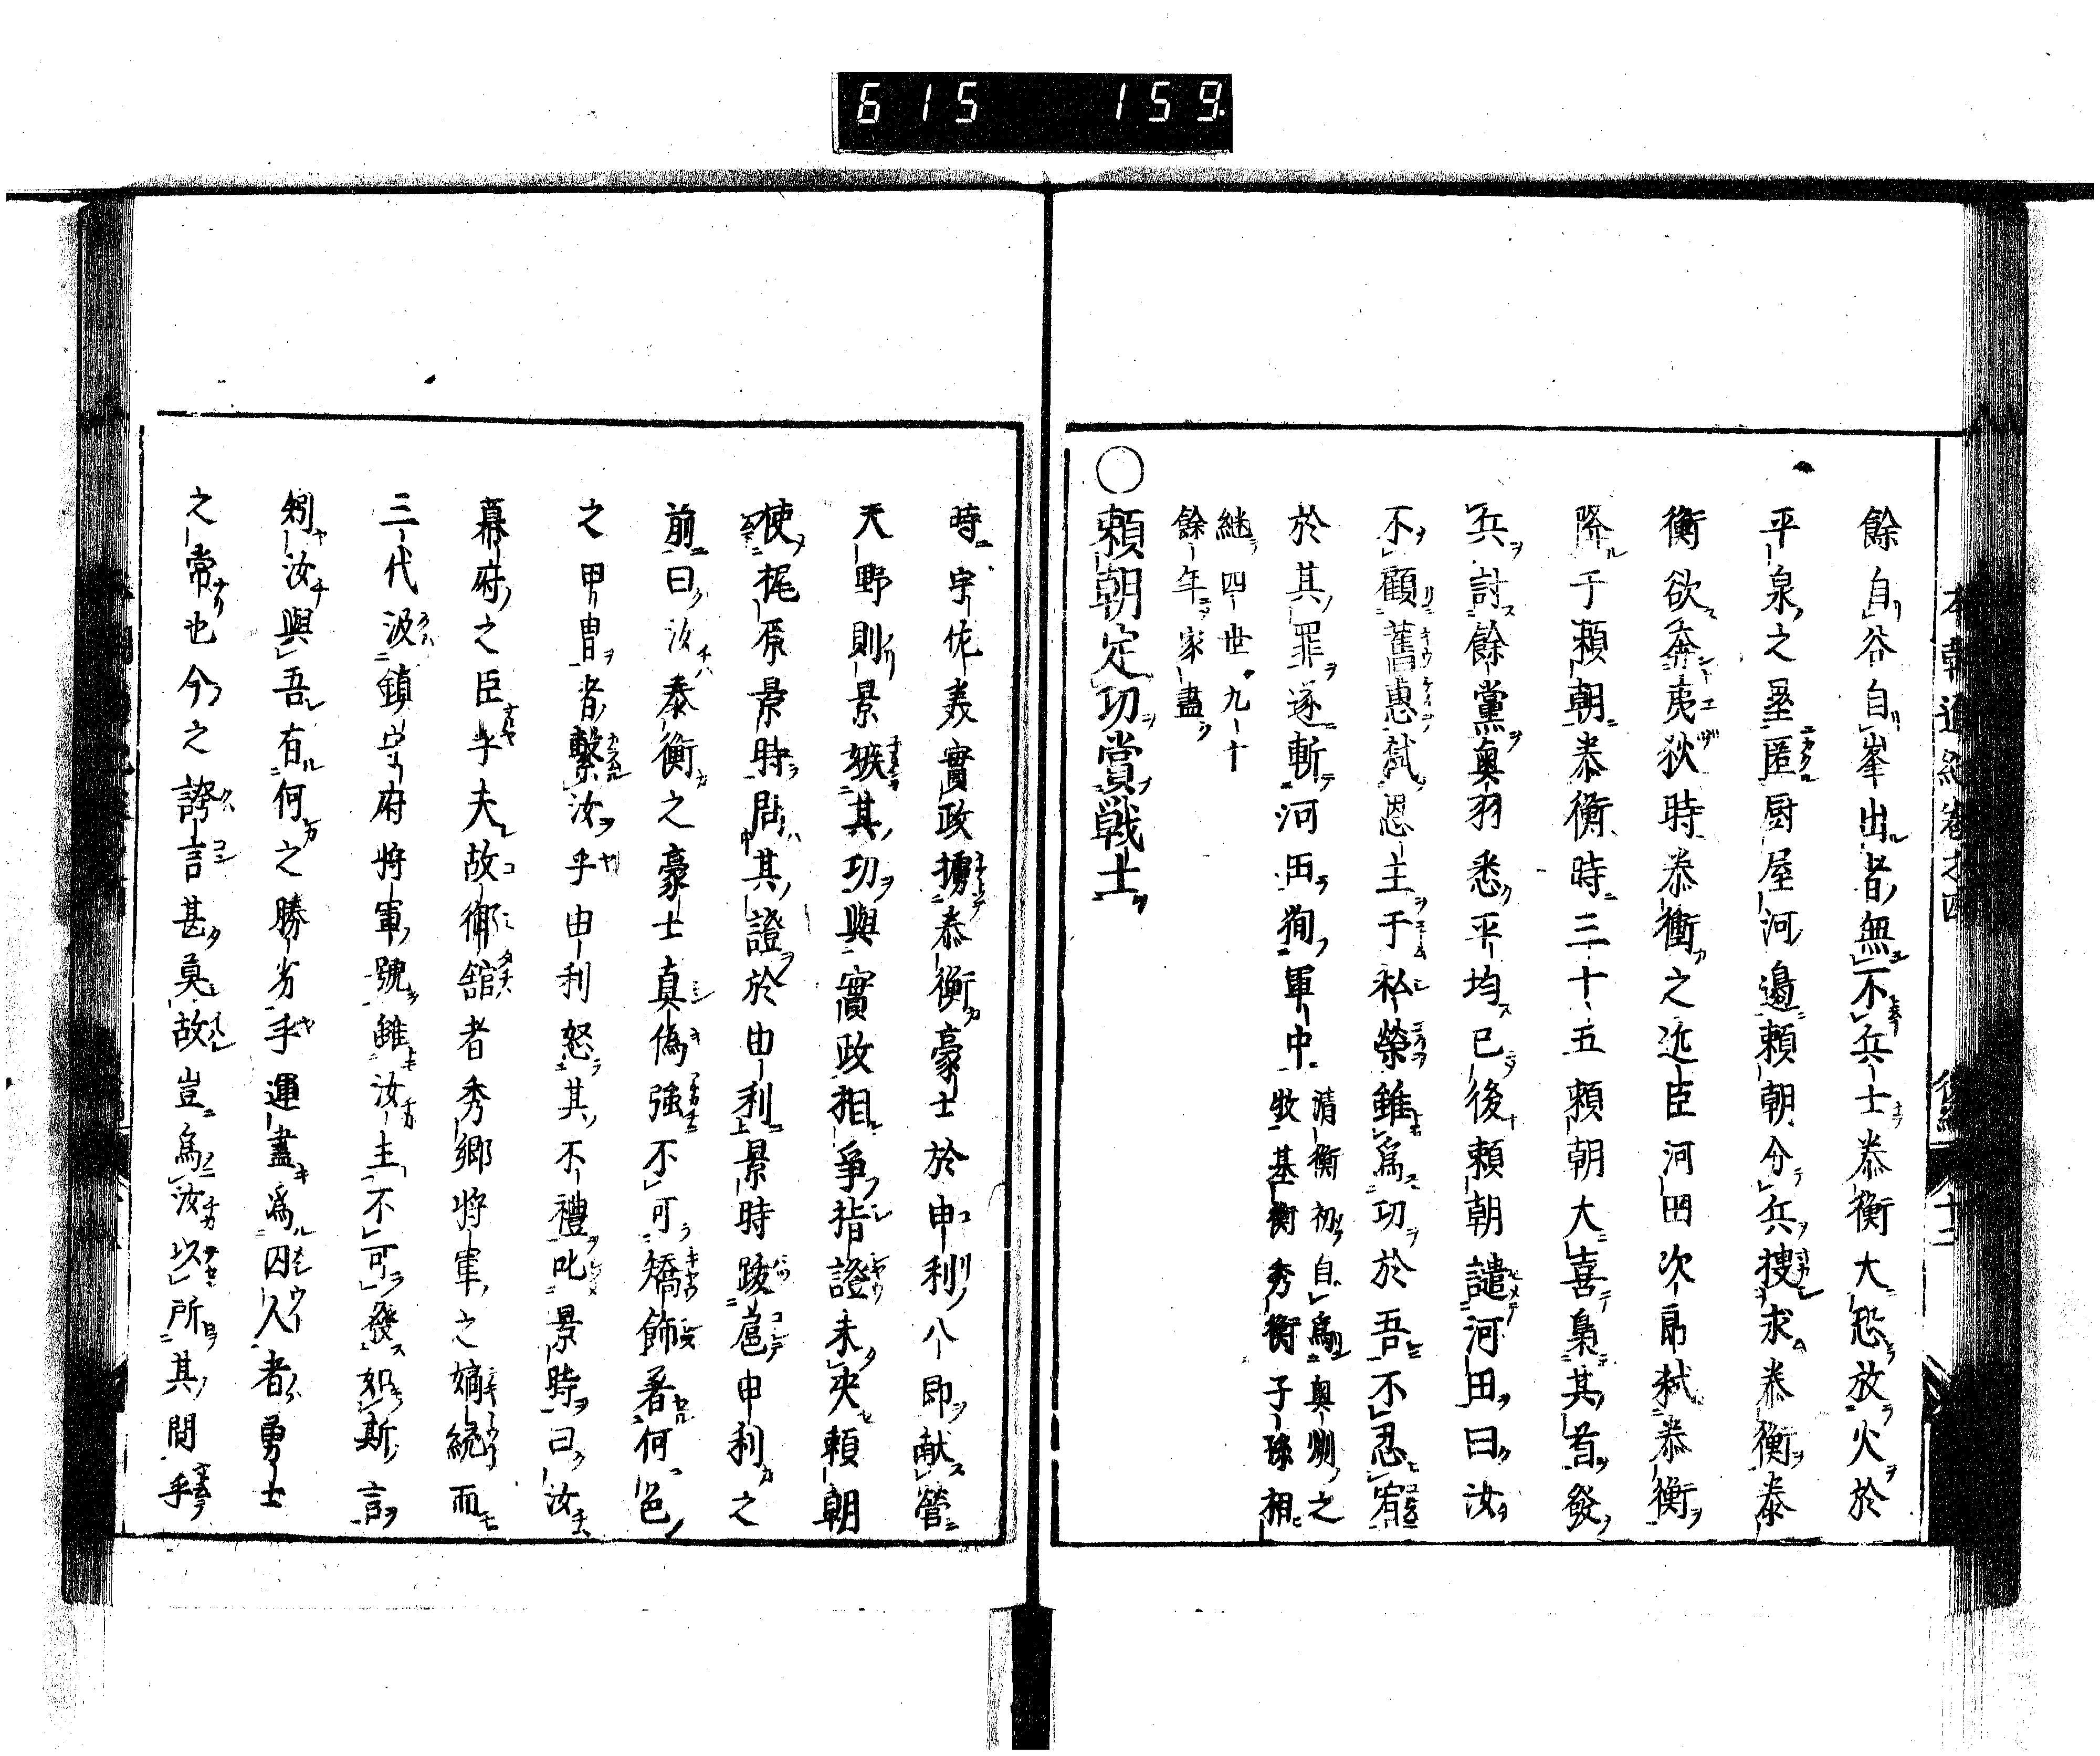 615 159
餘自谷自峯出者無不兵士泰衡大恐放火於
平泉之壘匿厨屋河邊頼朝分兵捜求泰衡泰
衡欲奔夷狄時泰衡之近臣河田次郎弑泰衡
降于頼朝泰衡時三十五頼朝大喜梟其首發
兵討餘黨奥羽悉平均已後頼朝譴河田曰汝
不顧舊惠弑恩主于私榮雖爲功於吾不忍宥
於其罪遂斬河田徇軍中
清衡初自爲奥州之
牧基衡秀衡子孫相
継四世九十
餘年家盡
○頼朝定功賞戦士
時宇佐美實政擄泰衡豪士於由利八郎献營
天野則景嫉其功與實政相爭指證未决頼朝
使梶原景時問其證於由利景時踞扈由利之
前曰汝泰衡之豪士真偽強不可矯飾著何色
之甲冑者繫汝乎由利怒其不禮叱景時曰汝
幕府之臣乎夫故御舘者秀郷將軍之嫡統而
三代汲鎮守府將軍號雖汝主不可發如斯言
矧汝與吾有何之勝劣乎運盡爲囚人者勇士
之常也今之誇言甚莫故豈爲汝以所其問乎